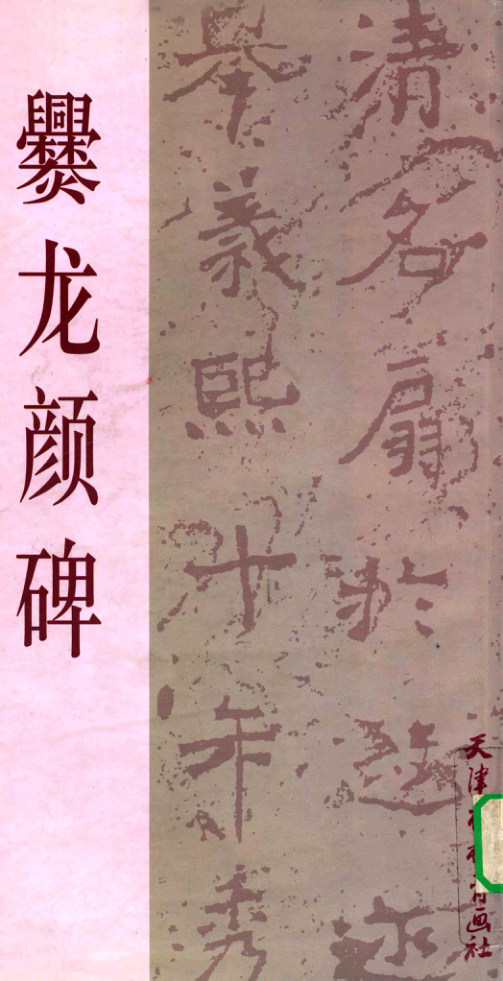 爨龙颜碑
清名扇於遐迩
举義熙十年秀
天津 画社